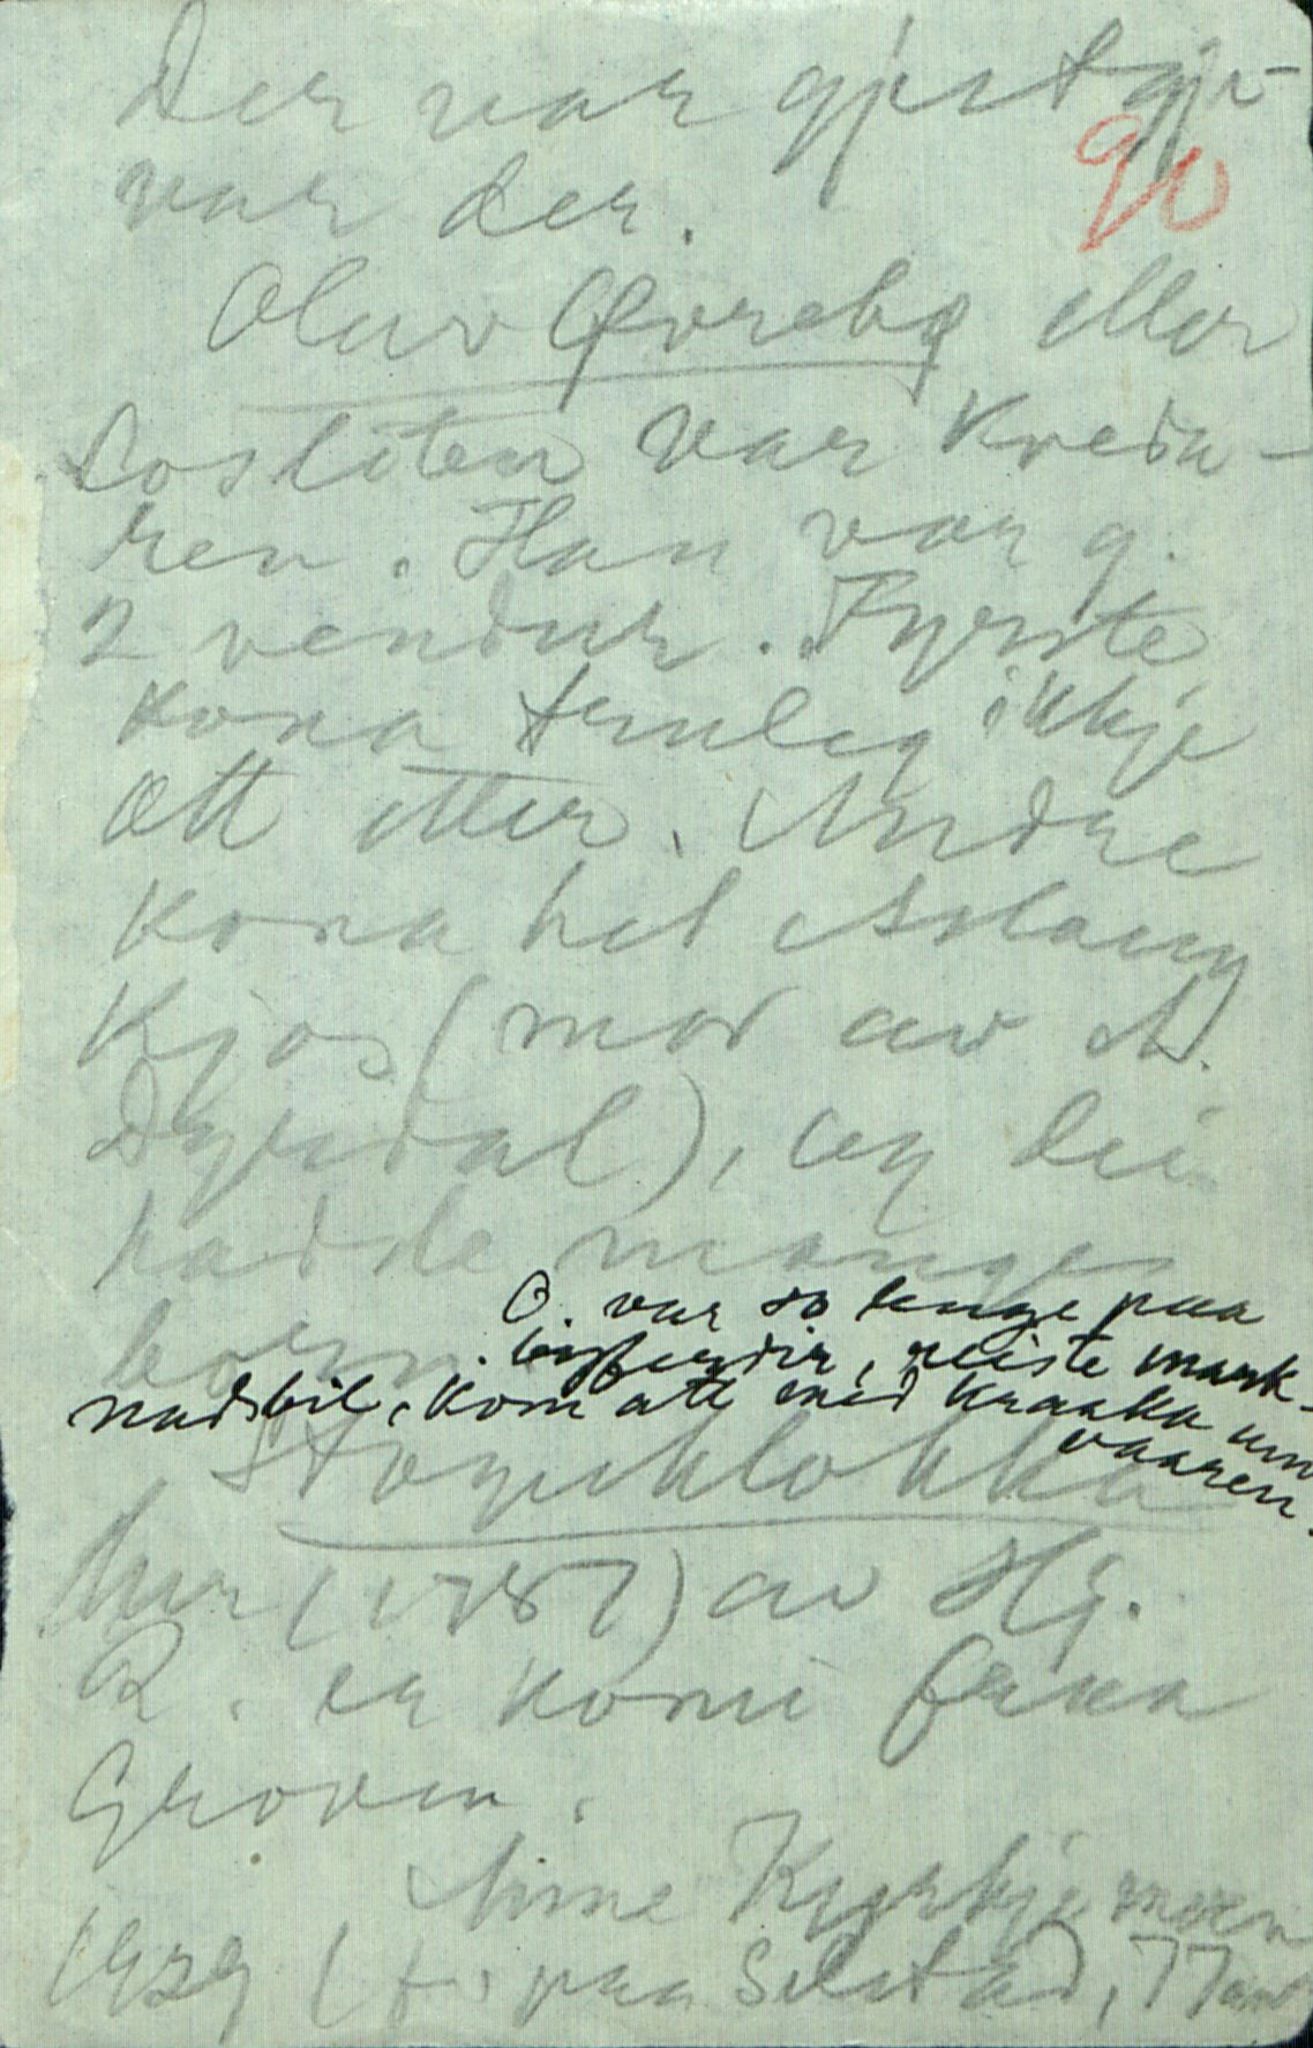 Der var gjestgje-
var der.
90
Oluv Øvrebø eller
Losliten var Kveda-
ren. Han var g.
2 vendur. Fyrste
kona truleg ikkje
ått etter. Andre
kona het Aslaug
Kjos (mor av A.
Dyrdal), og dei
hadde mange
born.
O. var so lenge paa
bygferdir, reiste mark-
nadsbil, kom att med kraaka um
vaaren.
Støyleklokka
hu (1787) av Hj.
R. er komi fraa
Groven.
Anne Kyrkjemoen
1929 (f. paa Selstad, 77 aar